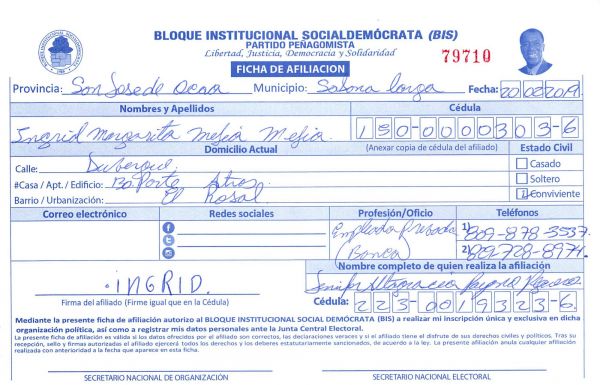 BLOQUE INSTITUCIONAL SOCIALDEMÓCRATA (BIS)
PARTIDO PEÑAGOMISTA
Libertad, Justicia, Democracia y Solidaridad
79710
FICHA DE AFILIACION
Provincia: San Jose de Ocoa Municipio: Sabana Larga Fecha: 20/02/2019
Nombres y Apellidos Cédula
Ingrid Margarita Mejia Mejia 150-0000303-6
Domicilio Actual (Anexar copia de cédula del afiliado) Estado Civil
Calle: Duberque Casado
#Casa / Apt. / Edificio: Bo Parte Atras Soltero
Barrio / Urbanización: El Rosal Conviviente
Correo electrónico Redes sociales Profesión/Oficio Teléfonos
Empleada Privada 1) 809-878-3537
(Banca) 2) 829-728-8974
Nombre completo de quien realiza la afiliación
INGRID Altagracia
Firma del afiliado (Firme igual que en la Cédula) Cédula: 223-0019323-6
Mediante la presente ficha de afiliación autorizo al BLOQUE INSTITUCIONAL SOCIAL DEMÓCRATA (BIS) a realizar mi inscripción única y exclusiva en dicha
organización política, así como a registrar mis datos personales ante la Junta Central Electoral.
La presente ficha de afiliación es válida si los datos ofrecidos por el afiliado son correctos, las declaraciones veraces y si el afiliado tiene el disfrute de sus derechos civiles y políticos. Tras su
recepción, sello y firmas autorizadas el afiliado ejercerá todos los derechos y los deberes estatutariamente sancionados, de acuerdo a la ley. La presente afiliación anula cualquier afiliación
realizada con anterioridad a la fecha que aparece en esta ficha.
SECRETARIO NACIONAL DE ORGANIZACIÓN SECRETARIO NACIONAL ELECTORAL